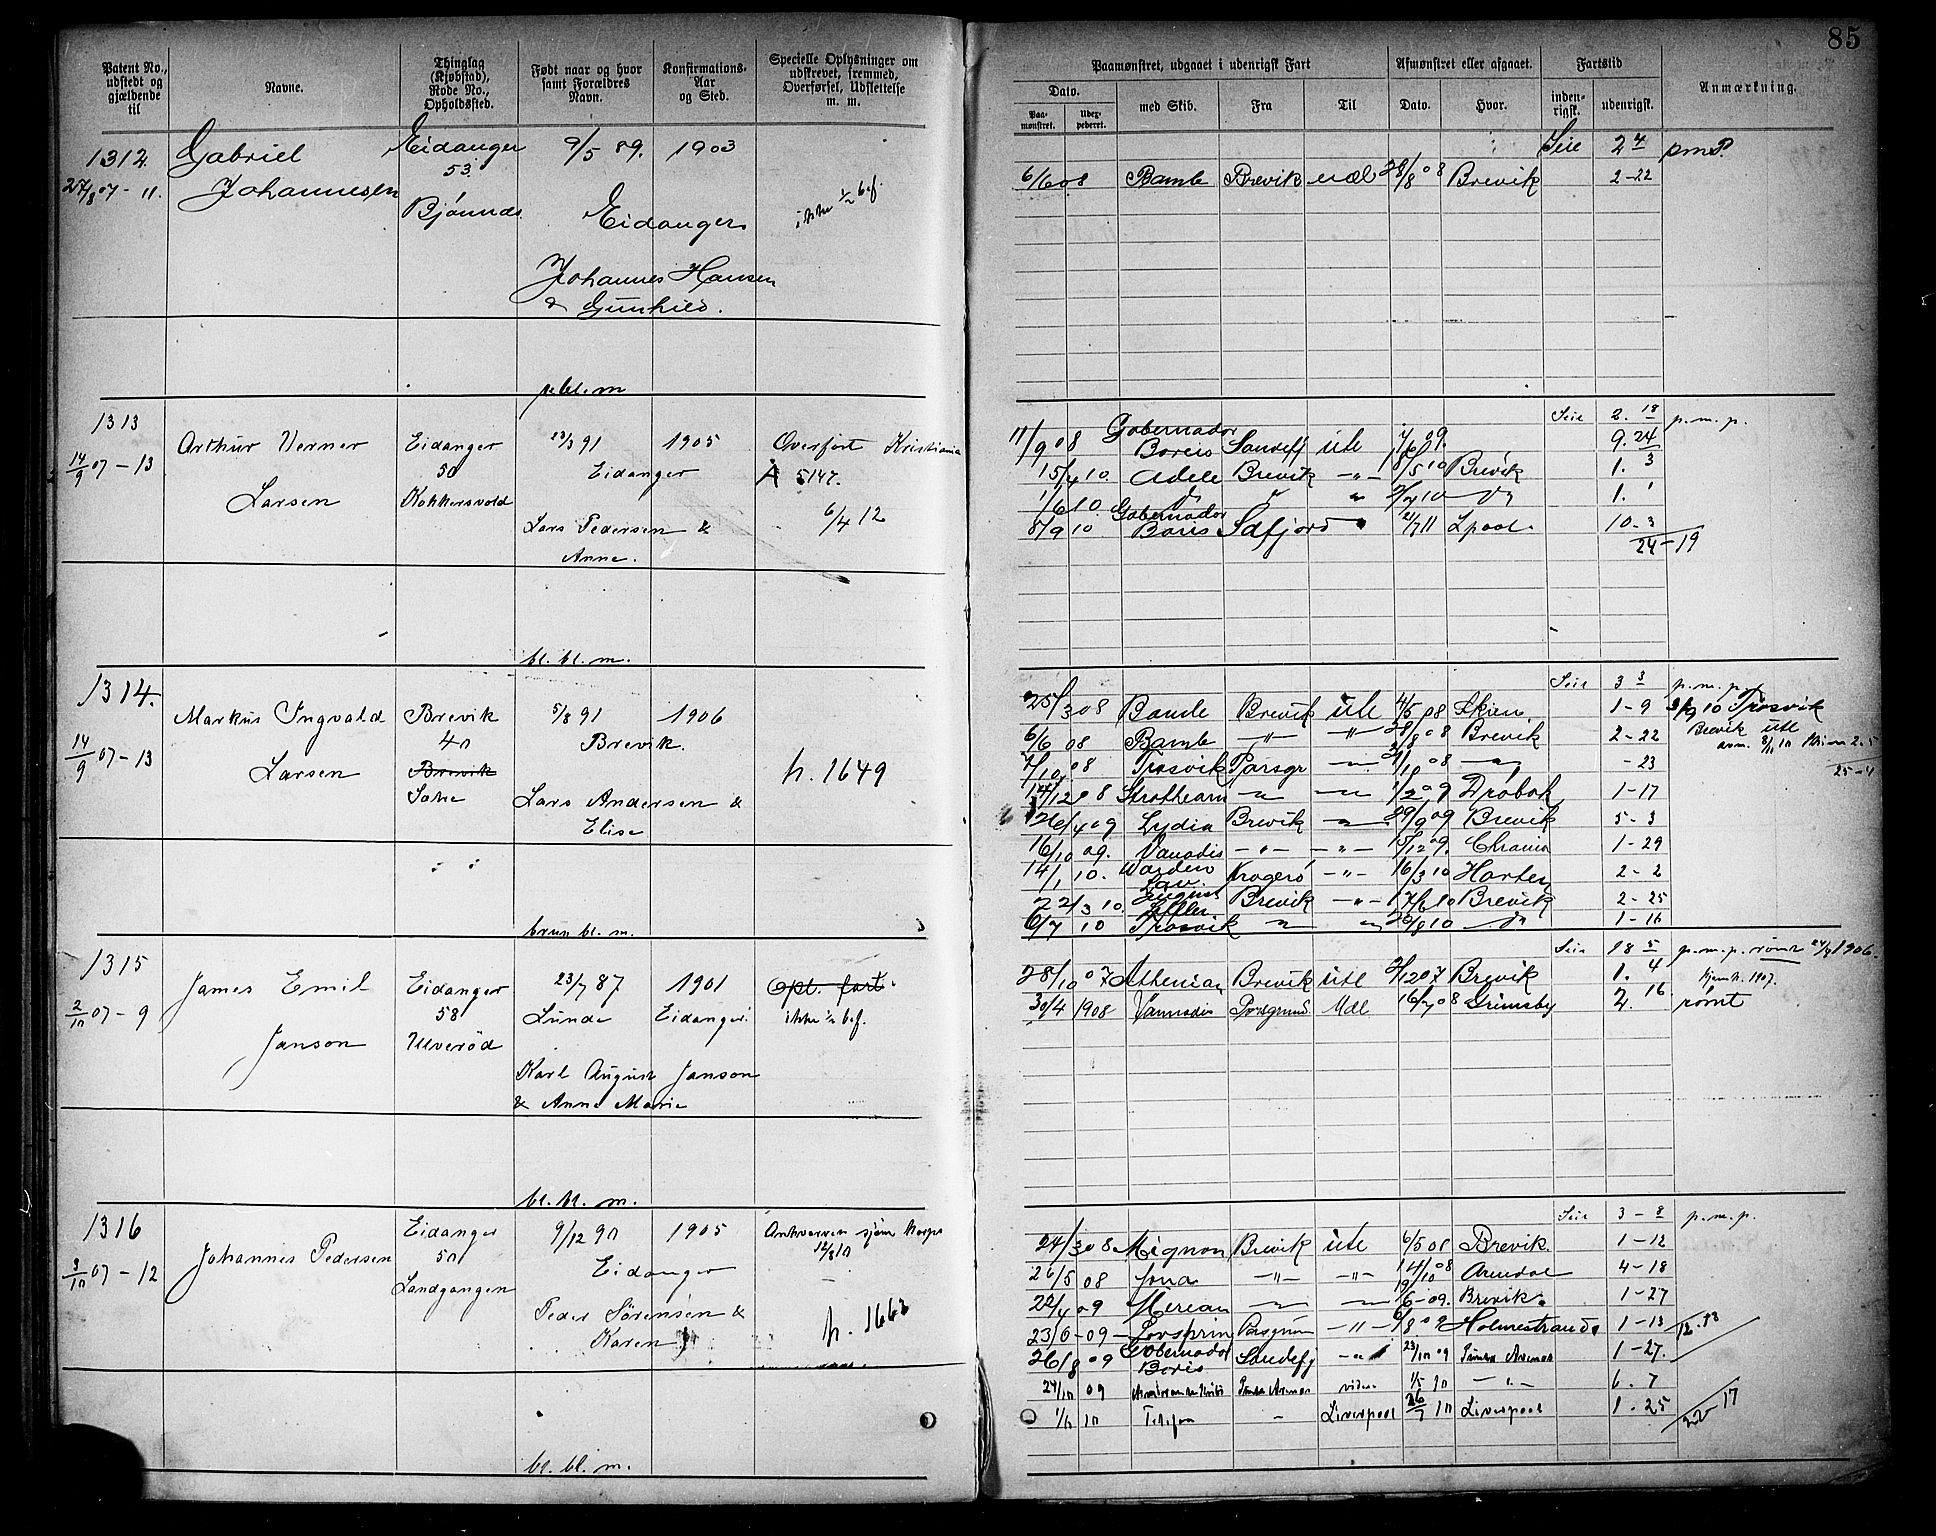 85
Patent No., udstedt og gjældende til
Navne.
Thinglag (Kjøbstad), Rode No., Opholdssted.
Født naar og hvor samt Forældres Navn.
Konfirmations-Aar og Sted.
Specielle Oplysninger om udskrevet, fremmed, Overførsel, Udslettelse m. m.
Paamønstret, udgaaet i udenrigsk Fart
Afmønstret eller afgaaet.
Fartstid
Anmærkning.
Dato.
Paa-mønstret.
Udex-pederet.
med Skib.
Fra
Til
Dato.
Hvor.
inden-rigsk.
udenrigsk.
1312 Gabriel Eidanger 9/5 89. 1903
27/8 07 - 11. Johannesen 53. ikke ½ bef.
Bjønnes Eidanger
Johannes Hansen
& Gunhild.
bl. bl. m
Seie 2 4 p.m.p.
6/6 08 Bamb Brevik udl 28/8 08 Brevik 2-22
1313 Arthur Verner Eidanger 23/3 91 1905 Overført Kristiania
14/9 07-13 50 Eidanger Å 5147.
Larsen Kokkersvold 6/4 12
Lars Pedersen &
Anne.
bl. bl. m.
Seie 2. 18 p.m.p.
11/9 08 Gobernador Boreis Sandefj utl 4/6 09. 9.24
15/4 10. Adele Brevik -"- 18/5 10 Brevik 1. 3
1/6 10 " 2/7 10 1. 1
8/9 10 Gobernador Boris Søfjord 21/7 11 Lpool. 10-3
24-19
1314. Markus Ingvald Brevik 5/8 91 1906
14/9 07-13 40 Brevik.
Larsen Brevik h. 1649
Lars Andersen &
Elise
brun bl. m.
Seie 3 3 p.m.p.
25/3 08 Bamle Brevik utl 4/5 08 Skien 1-9 3/9 10 Trosvik
6/6 08 Bamb -"- -"- 28/8 08 Brevik 2-22 Brevik utl
7/10 08 Trosvik Porsgr -23 25-4
14/12 08 Strathearn 1/2 09 Drøbak 1-17
26/4 09 Lydia Brevik 29/9 09 Brevik 5-3
16/10 09. Vanadis -"- -"- 15/12 09. Chrania 1-29
14/1 10. Warden Law. Kragerø -"- 16/3 10 Horten 2-2
22/3 10. August Brevik -"- 17/6 10 Brevik 2-25
6/7 10 Trosvik 20/8 10 1-16
1315 James Emil Eidanger 23/7 87 1901 Opt. fart.
2/10 07-9 58 Lunde Eidanger. ikke ½ bef.
Janson Ulverød
Karl August Janson
& Anne Marie
bl. bl. m.
Seie 18 5 p.m.p. rømt 1906.
28/10 07 Athenian Brevik utl 2/12 07 Brevik 1. 4 hjemk. 1907.
30/4 1908 Vannadis Porsgrund Udl 16/7 08 Grimsby 2. 16 rømt
1316 Johannes Pedersen Eidanger 9/12 90 1905 Ankerven sjøm Korps
3/10 07-12 50 Eidanger 12/8 10
Landgangen
Peder Sørensen &
Karen h. 1663
bl. bl. m.
Seie 3-8 p.m.p.
24/3 08 Mignon Brevik utl 6/5 08 Brevik. 1-12
26/5 08 Jona -"- -"- 14/10 08 Arendal 4-18
22/4 09 Merian 19/6-09. Brevik. 1-27
23/6-09- Lovsprin Porsgrun -"- 6/8 09 Holmestrand 1-13 12.13
26/8 09 Gobernador Boris Sandefj 23/10 09 1-27.
24/10 09 videre 1/5 10 -"- 6. 7
1/6 10 - Liverpool 26/7 10 Liverpool 1. 25 22-17